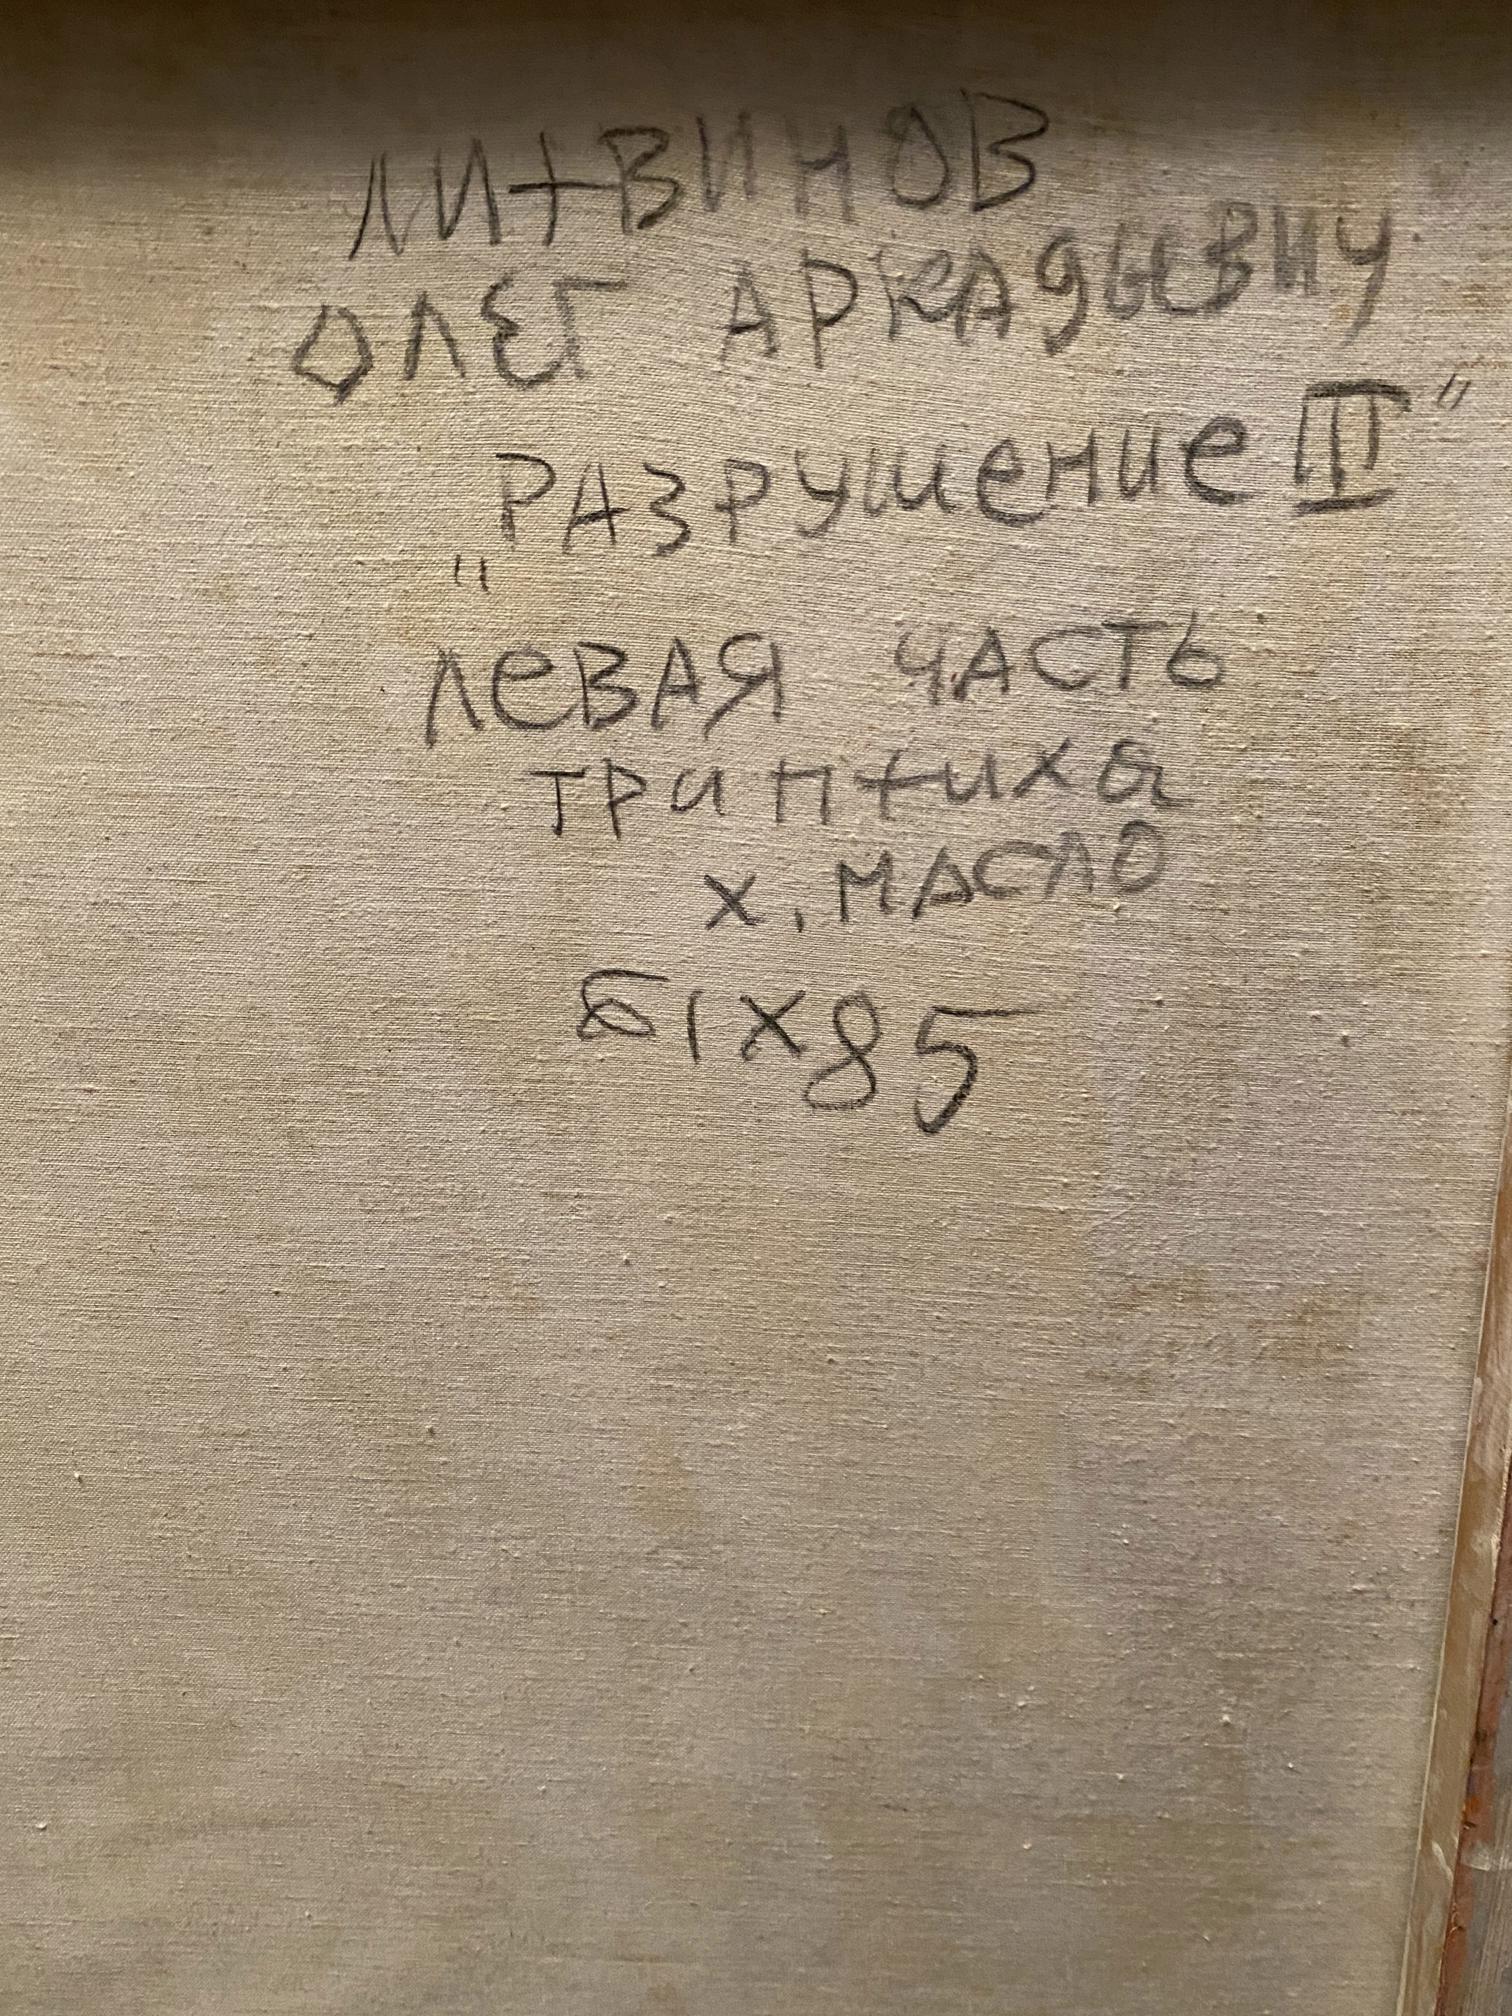 ЛИТВИНОВ
ОЛЕГ АРКАДЬЕВИЧ
"РАЗРУШЕНИЕ II"
ЛЕВАЯ ЧАСТЬ
триптиха
х, МАСЛО
61х85